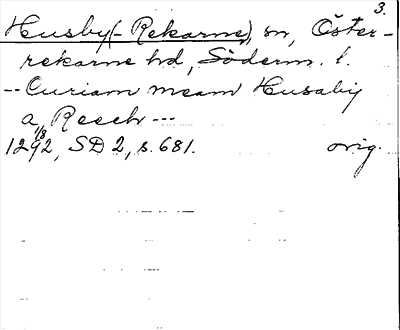 3.
Husby(-Rekarne), sn, Öster-
rekarne hd, Söderm. l.
-- Curiam meam Husaby
a Reech ---
1292 1/3, SD 2, s. 681. orig.